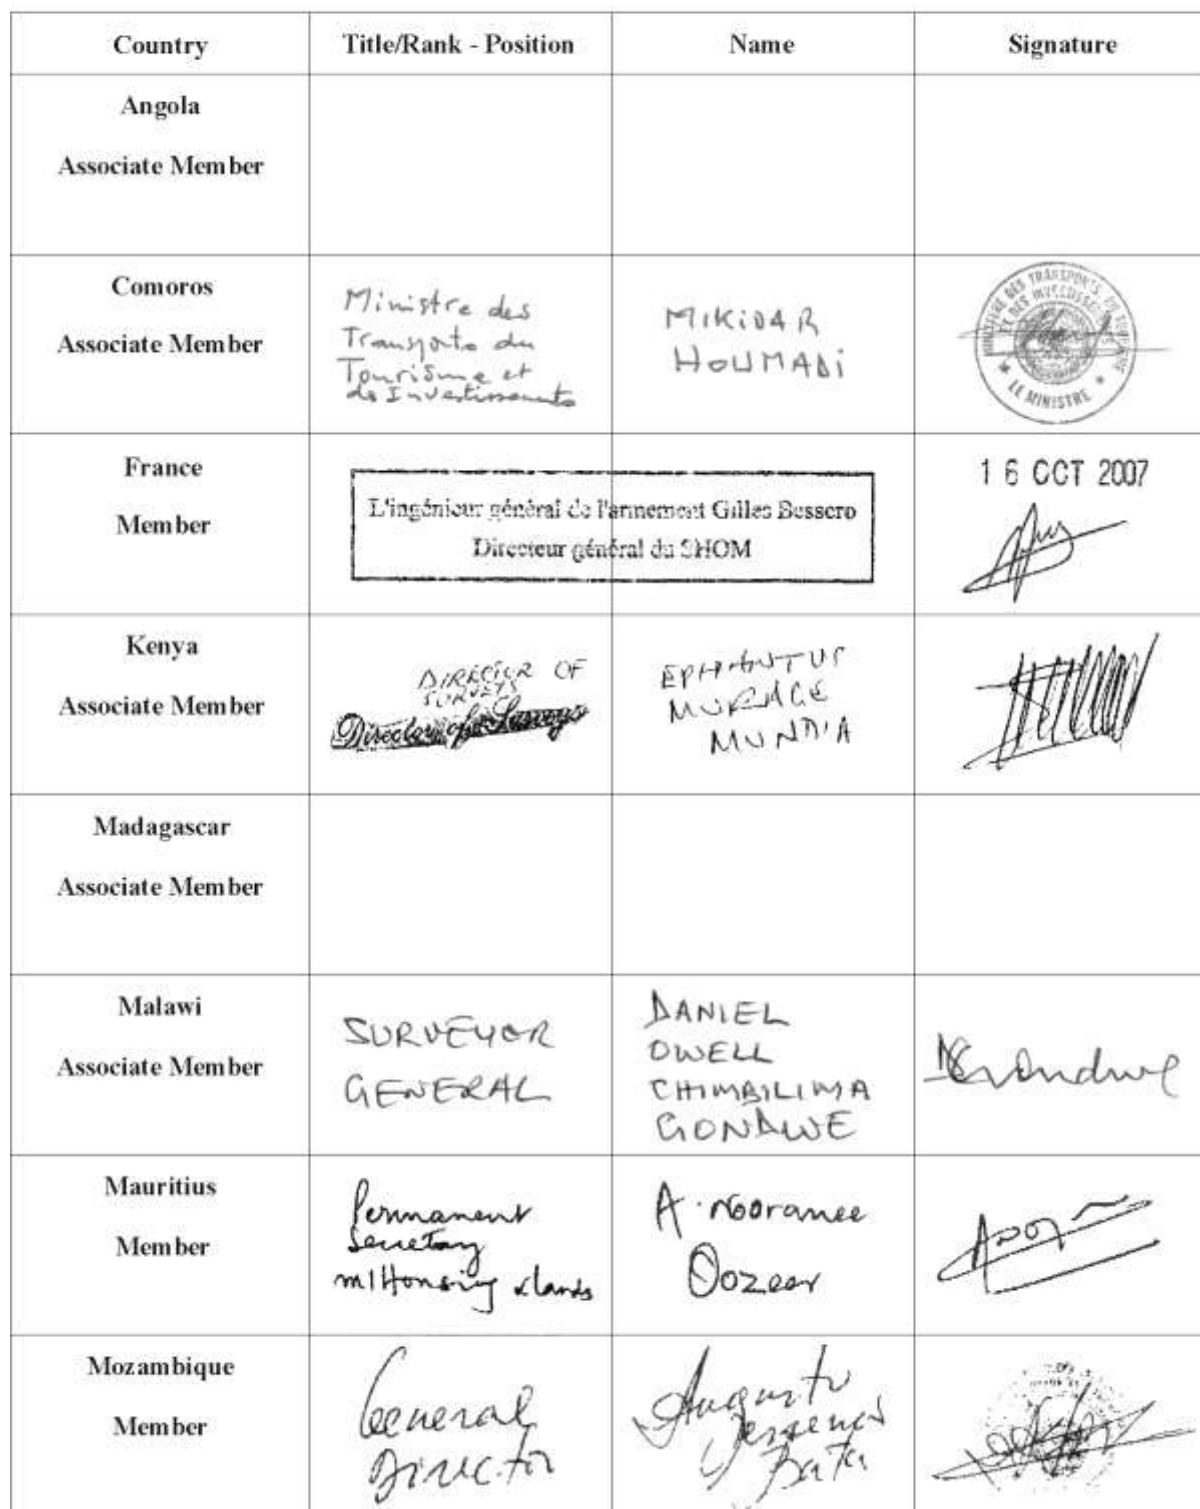 Country Title/Rank - Position Name Signature
Angola
Associate Member
Comoros
Associate Member
Ministre des
Transports du
Tourisme et
des Investissements
MIKIDAR
HOUMADI
MINISTERE DES TRANSPORTS, DU TOURISME
ET DES INVESTISSEMENTS
LE MINISTRE
France
Member
L'ingénieur général de l'armement Gilles Bessero
Directeur général du SHOM
16 OCT 2007
Kenya
Associate Member
DIRECTOR OF
SURVEYS
Director of Surveys
EPHANTUS
MURAGE
MUNDIA
Madagascar
Associate Member
Malawi
Associate Member
SURVEYOR
GENERAL
DANIEL
OWELL
CHIMBILIMA
GONDWE
Mauritius
Member
Permanent
Secretary
m/Housing & lands
A. Nooranee
Oozeer
Mozambique
Member
General
Director
Augusto
Bata